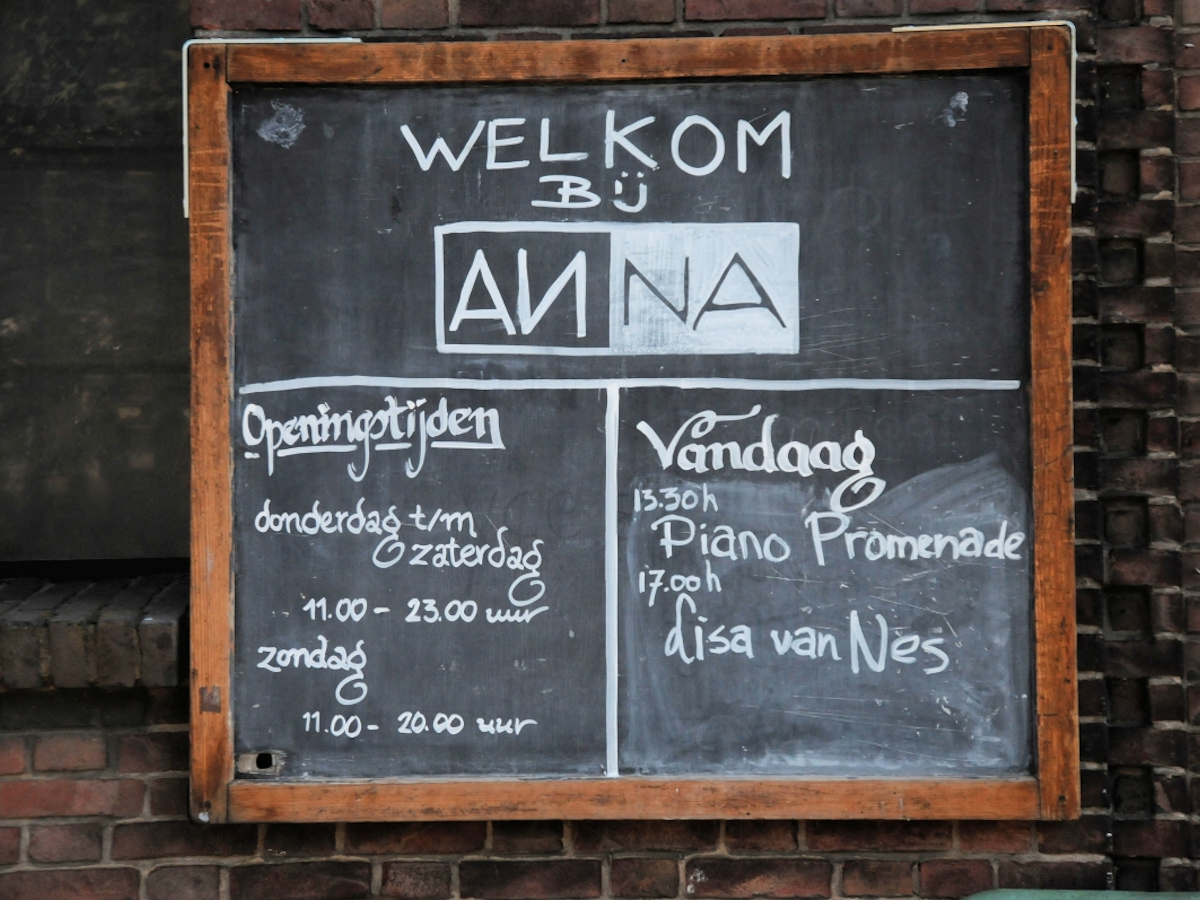 WELKOM
Bij
ANNA
Openingstijden
donderdag t/m
zaterdag
11.00 - 23.00 uur
zondag
11.00 - 20.00 uur
Vandaag
13.30h
Piano Promenade
17.00h
Lisa van Nes